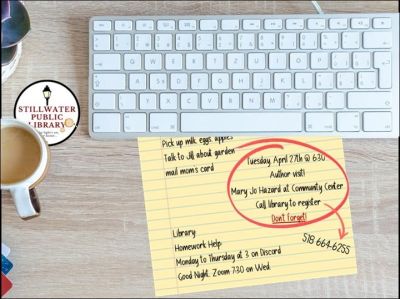 STILLWATER
PUBLIC
LIBRARY
Pick up milk eggs apples
Talk to Jill about garden
mail mom's card
Tuesday April 27th @ 6:30
Author visit!
Mary Jo Hazard at Community Center
Call library to register
Don't forget!
518 664-6255
Library:
Homework Help
Monday to Thursday at 3 on Discord
Good Night Zoom 7:30 on Wed.